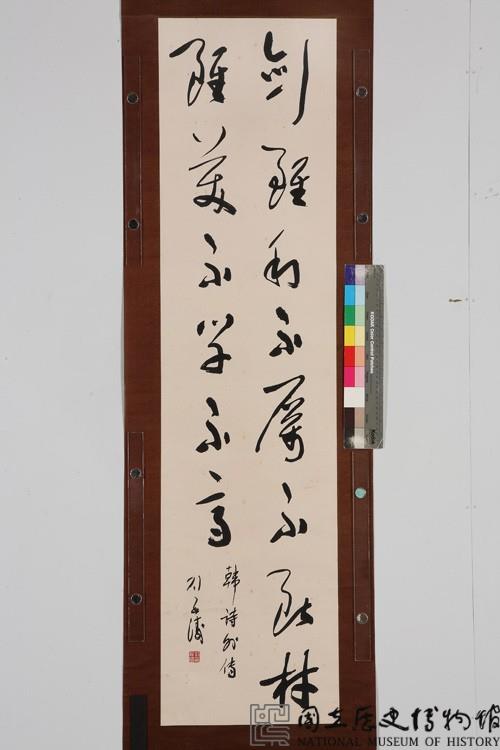 劍雖利不厲不斷材
雖美不學不高
韓詩外傳
劉延濤
KODAK Color Control Patches
Kodak
國立歷史博物館
NATIONAL MUSEUM OF HISTORY